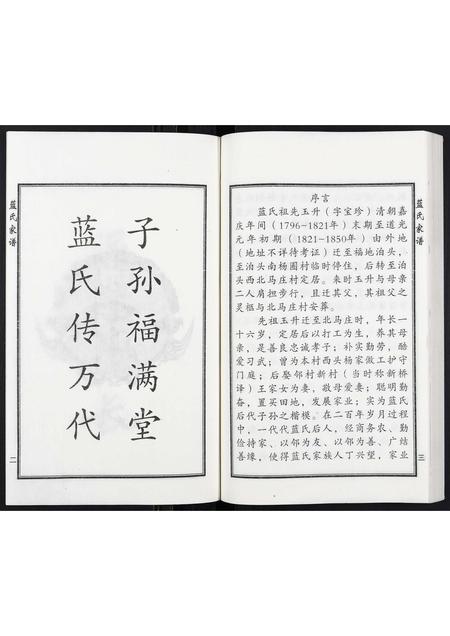 蓝氏家谱
子孙福满堂
蓝氏传万代
二
蓝氏家谱
序言
蓝氏祖先玉升（字宝珍）清朝嘉
庆年间（1796-1821年）末期至道光
元年初期（1821-1850年）由外地
（地址不详待考证）迁至福地泊头，
至泊头南杨圈村临时停住，后转至泊
头西北马庄村定居。来时玉升与母亲
二人肩担步行，且迁其父，其祖父之
灵柩与北马庄村安葬。
先祖玉升迁至北马庄时，年长一
十六岁，定居后以打工为生，养其母
亲，是善良忠诚孝子；朴实勤劳，酷
爱习武；曾为本村西头杨家做工护守
门庭；后娶邻村新村（当时称新桥
译）王家女为妻，敬母爱妻；聪明勤
奋，置买田地，发展家业；实为蓝氏
后代子孙之楷模。在二百年岁月过程
中，一代代蓝氏后人，经商务农、勤
俭持家、以邻为友、以邻为善、广结
善缘，使得蓝氏家族人丁兴望，家业
三